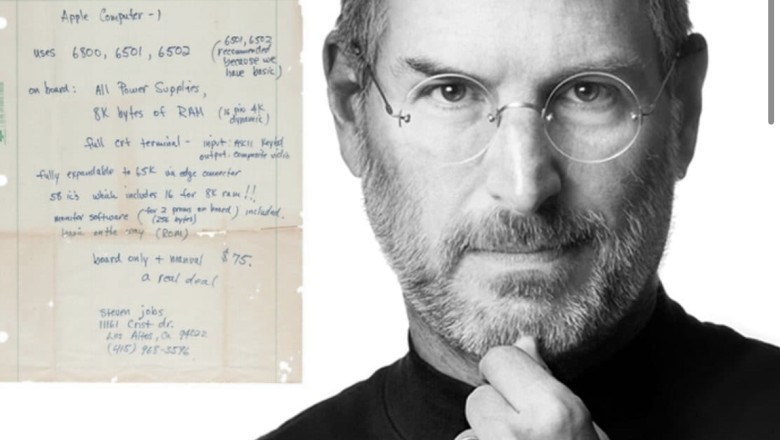 Apple Computer-1
uses 6800, 6501, 6502 (6501, 6502
recommended
because we
have basic)
on board: All Power Supplies,
8K bytes of RAM (16 pin 4K
dynamic)
full crt terminal - input: ASCII Keybd
output: composite video
fully expandable to 65K via edge connector
58 ic's which includes 16 for 8K ram!!
monitor software (for 2 proms on board) included.
(256 bytes)
basic on the way (ROM)
board only + manual $75.
a real deal
Steven jobs
11161 Crist dr.
Los Altos, Ca 94022
(415) 968-3596